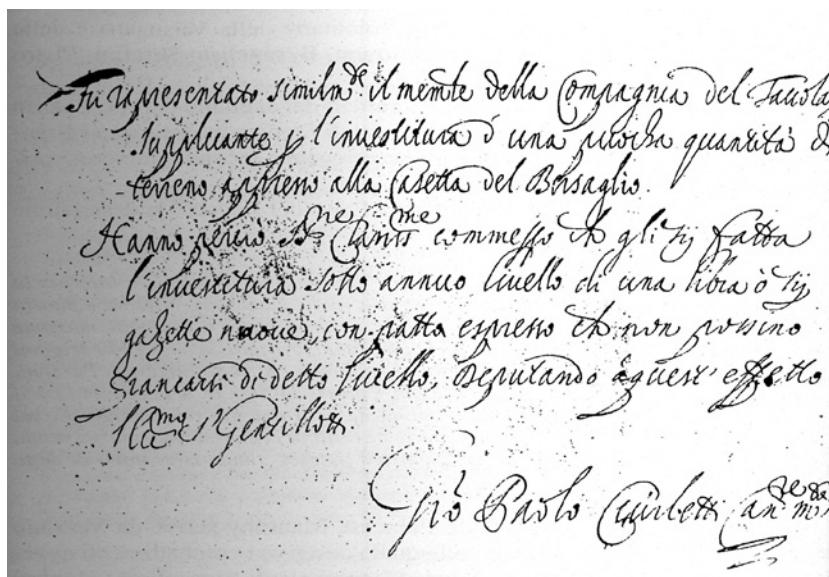 Fu rapresentato similmte il memle della Compagnia del Tavolaz
Supplicante p l'investitura d una pocha quantità di
terreno appresso alla Casetta del Bersaglio.
Hanno perciò commesso ch gli sij fatta
l'investitura sotto annuo livello di una libra ò sij
gazette nuove, con patto espresso ch non possino
francarsi di detto livello, Deputando à quest' effetto
Sr Gentillotti
Giò Paolo